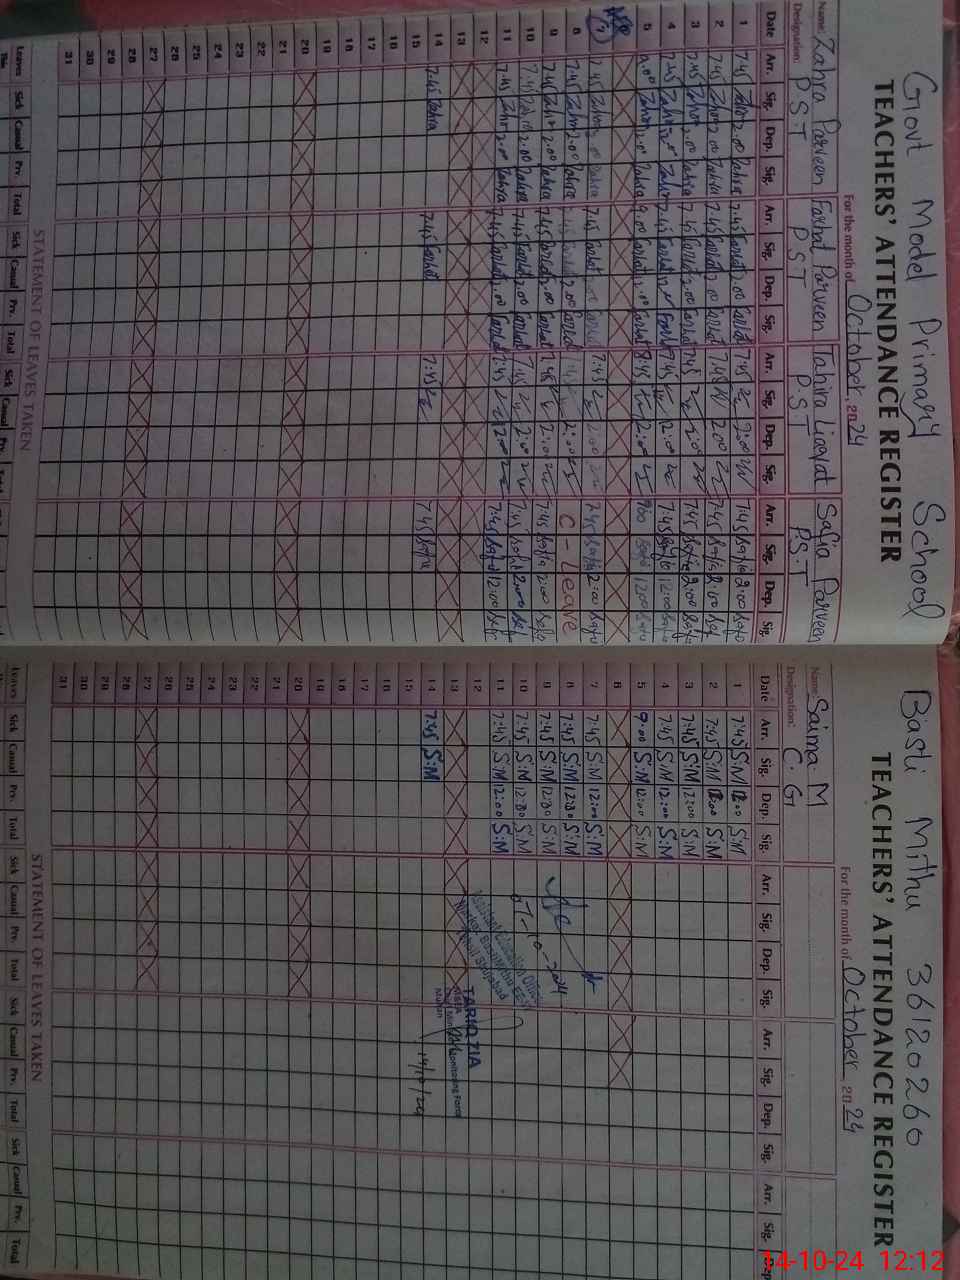 Govt Model Primary School
TEACHERS' ATTENDANCE REGISTER
For the month of October, 2024
Name: Zahra Parveen Farhat Parveen Tahira Liaqat Safia Parveen
Designation: P.S.T P.S.T P.S.T P.S.T
Date Arr. Sig. Dep. Sig. Arr. Sig. Dep. Sig. Arr. Sig. Dep. Sig. Arr. Sig. Dep. Sig.
1 7:45 Zahra 2:00 Zahra 7:45 Farhat 2:00 Farhat 7:45 2:00 7:45 Safia 2:00 Safia
2 7:45 Zahra 2:00 Zahra 7:45 Farhat 2:00 Farhat 7:45 2:00 7:45 Safia 2:00
3 7:45 Zahra 2:00 Zahra 7:45 Farhat 2:00 Farhat 7:45 2:00 7:45 Safia 2:00
4 7:45 Zahra 12:00 Zahra 7:45 Farhat 12:00 Farhat 7:45 12:00 7:45 Safia 12:00
5 9:00 Zahra Zahra 9:00 Farhat Farhat 8:45 12:00 9:00 Safia 12:00
6
7 7:45 Zahra 2:00 Zahra 7:45 Farhat 2:00 Farhat 7:45 2:00 7:45 Safia 2:00 Safia
8 7:45 Zahra 2:00 Zahra 7:45 Farhat 2:00 Farhat 7:45 2:00 C - Leave
9 7:45 Zahra 2:00 Zahra 7:45 Farhat 2:00 Farhat 7:45 2:00 7:45 Safia 2:00 Safia
10 7:45 Zahra 2:00 Zahra 7:45 Farhat 2:00 Farhat 7:45 2:00 7:45 Safia 2:00
11 7:45 Zahra 12:00 Zahra 7:45 Farhat 12:00 Farhat 7:45 12:00 7:45 Safia 12:00
12
13
14 7:45 Zahra 7:45 Farhat 7:45 7:45 Safia
15
16
17
18
19
20
21
22
23
24
25
26
27
28
29
30
31
STATEMENT OF LEAVES TAKEN
Leaves Sick Casual Prv. Total Sick Casual Prv. Total Sick Casual Prv. Total
Basti Mithu 36120260
TEACHERS' ATTENDANCE REGISTER
For the month of October 2024
Name: Saima. M
Designation: C.G
Date Arr. Sig. Dep. Sig. Arr. Sig. Dep. Sig. Arr. Sig. Dep. Sig. Arr. Sig. Dep.
1 7:45 S:M 12:00 S:M
2 7:45 S:M 12:00 S:M
3 7:45 S:M 12:00 S:M
4 7:45 S:M 12:00 S:M
5 9:00 S:M 12:00 S:M
6
7 7:45 S:M 12:00 S:M
8 7:45 S:M 12:30 S:M
9 7:45 S:M 12:30 S:M
10 7:45 S:M 12:30 S:M
11 7:45 S:M 12:00 S:M
12
13
14 7:45 S:M
15
16
17
18
19
20
21
22
23
24
25
26
27
28
29
30
31
07-10-2024
Assistant Education Officer
Markaz Basti Mithu
Tehsil Shujabad
TARIQ ZIA
MEA
Chief Minister Monitoring Force
Multan
14/10/24
STATEMENT OF LEAVES TAKEN
Leaves Sick Casual Prv. Total Sick Casual Prv. Total Sick Casual Prv. Total Sick Casual Prv. Total
14-10-24 12:12